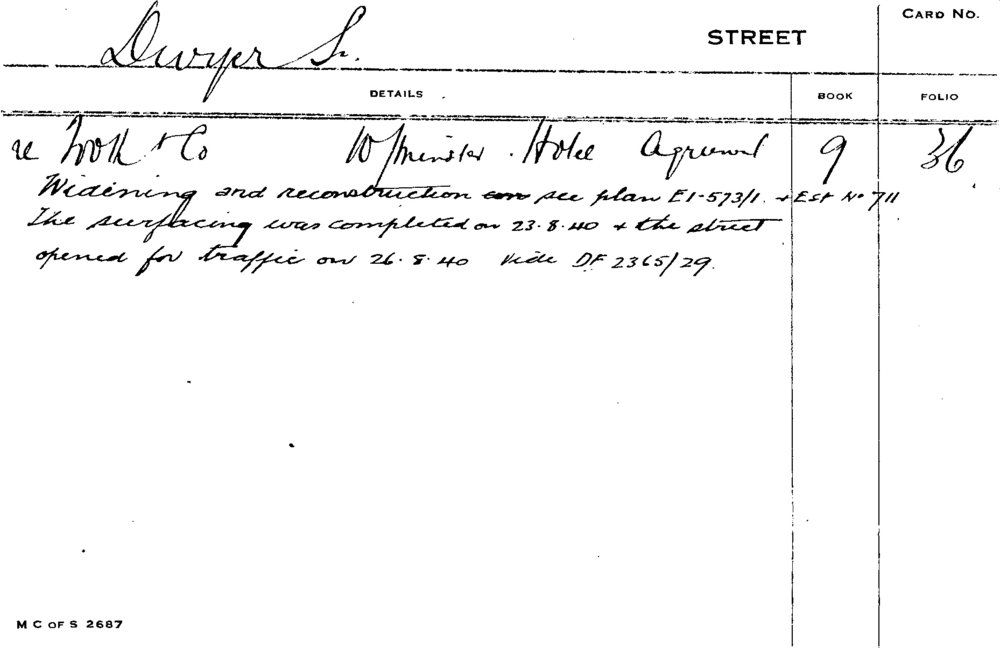 CARD NO.
Dwyer St. STREET
DETAILS BOOK FOLIO
re & Co W/minster Hotel Agreemt 9 36
Widening and reconstruction see plan E1-573/1. & Est No 711
The surfacing was completed on 23.8.40 & the street
opened for traffic on 26.8.40 vide DF 2365/29.
M C OF S 2687